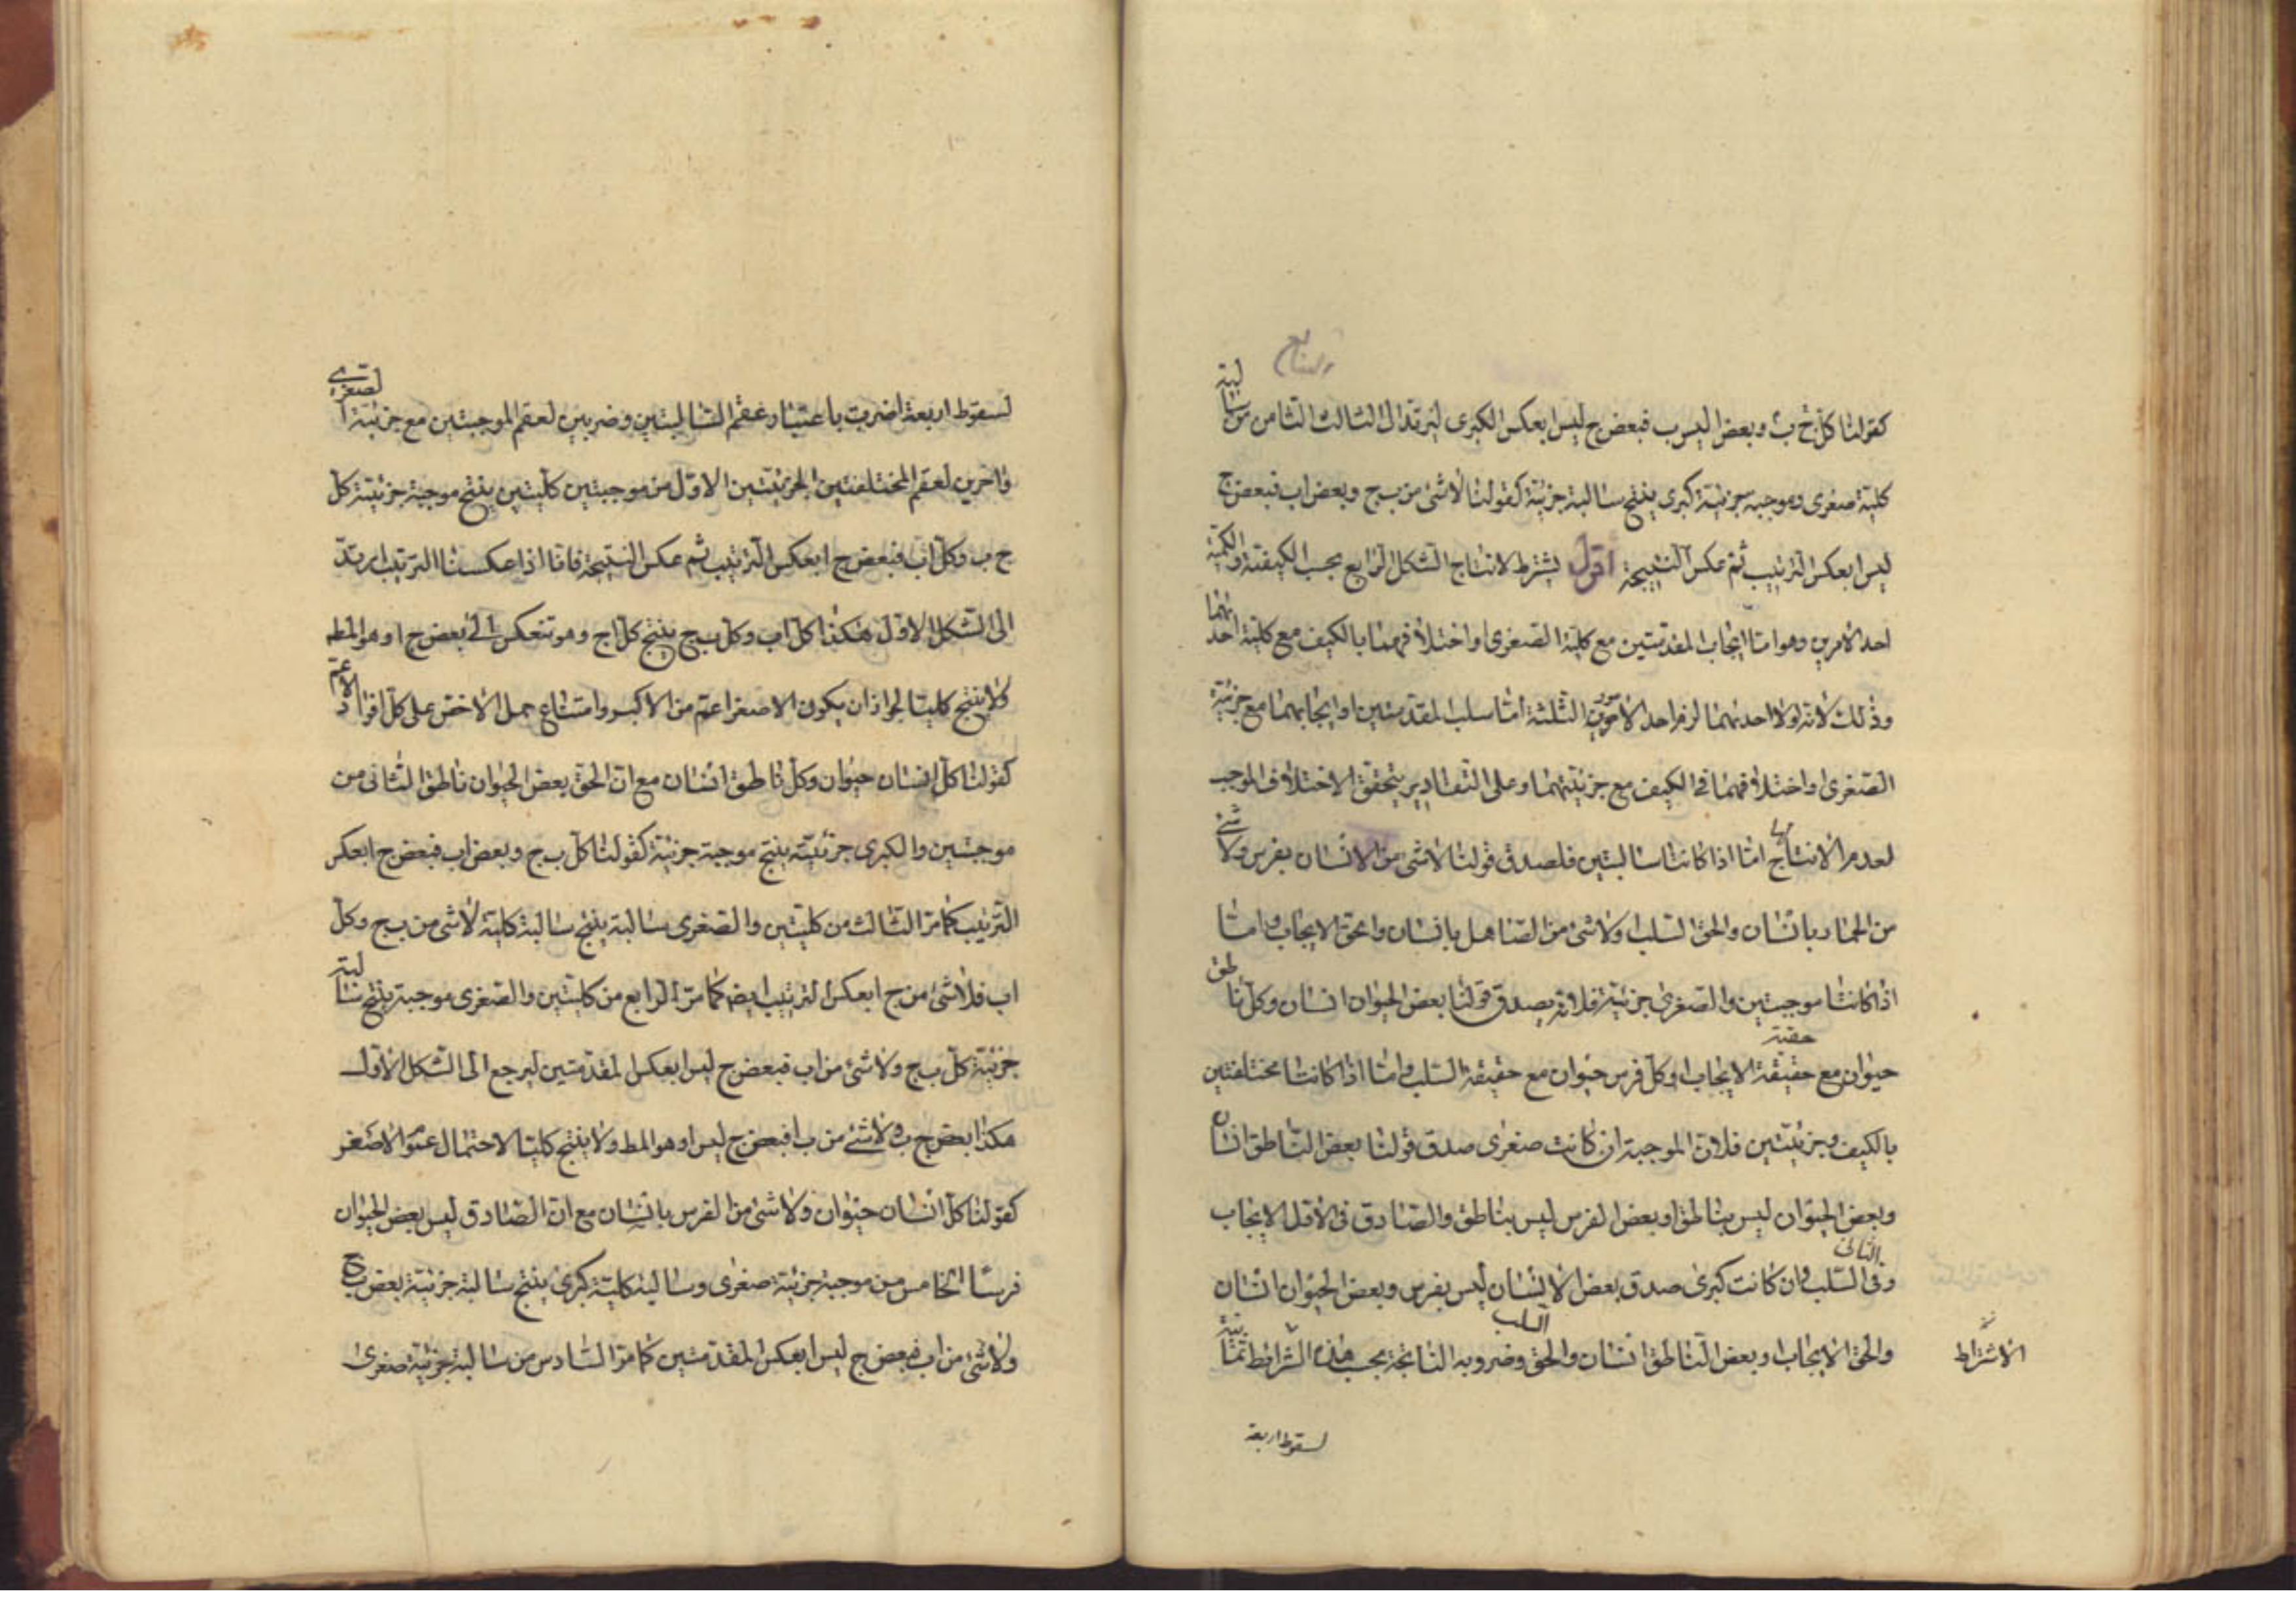 والسابع
كقولنا كل ج ب وبعض ا ليس ب فبعض ج ليس ا بعكس الكبرى ليرتد الى الثالث الثامن من سالبة
كلية صغرى وموجبة جزئية كبرى ينتج سالبة جزئية كقولنا لا شئ من ب ج وبعض ا ب فبعض ج
ليس ا بعكس الترتيب ثم عكس النتيجة اقول يشترط لانتاج الشكل الرابع بحسب الكيفية والكمية
احد الامرين وهو اما ايجاب المقدمتين مع كلية الصغرى او اختلافهما بالكيف مع كلية احديهما
وذلك لانه لولا احدهما لزم احد الامور الثلثة اما سلب المقدمتين او ايجابهما مع جزئية
الصغرى او اختلافهما في الكيف مع جزئيتهما وعلى التقادير يتحقق الاختلاف الموجب
لعدم الانتاج اما اذا كانتا سالبتين فلصدق قولنا لا شئ من الانسان بفرس ولا شئ
من الحمار بانسان والحق السلب ولا شئ من الصاهل بانسان والحق الايجاب واما
اذا كانتا موجبتين والصغرى جزئية فلانه يصدق قولنا بعض الحيوان انسان وكل ناطق
حيوان مع حقيقة الايجاب او كل فرس حيوان مع حقيقة السلب واما اذا كانتا مختلفتين
حقية
بالكيف وجزئيتين فلان الموجبة ان كانت صغرى صدق قولنا بعض الناطق انسان
وبعض الحيوان ليس بناطق او بعض الفرس ليس بناطق والصادق في الاول الايجاب
وفي الثاني السلب وان كانت كبرى صدق بعض الانسان ليس بفرس وبعض الحيوان انسان
والحق الايجاب او بعض الناطق انسان والحق السلب وضروبه الناتجة بحسب هذه الشرائط ثمانية
الاشتراط
لسقوط اربعة
لسقوط اربعة اضرب باعتبار عقم السالبتين وضربين لعقم الموجبتين مع جزئية الصغرى
واخرين لعقم المختلفتين الجزئيتين الاول من موجبتين كليتين ينتج موجبة جزئية كل
ج ب وكل ا ب فبعض ج ا بعكس الترتيب ثم عكس النتيجة فانا اذا عكسنا الترتيب ارتد
الى الشكل الاول هكذا كل ا ب وكل ب ج ينتج كل ا ج وهو تنعكس الى بعض ج ا وهو المط
ولا ينتج كليا لجواز ان يكون الاصغر اعم من الاكبر وامتناع حمل الاخص على كل افراد الاعم
كقولنا كل انسان حيوان وكل ناطق انسان مع ان الحق بعض الحيوان ناطق الثاني من
موجبتين والكبرى جزئية ينتج موجبة جزئية كقولنا كل ب ج وبعض ا ب فبعض ج ا بعكس
الترتيب كما مر الثالث من كليتين والصغرى سالبة ينتج سالبة كلية لا شئ من ب ج وكل
ا ب فلا شئ من ج ا بعكس الترتيب ايضا كما مر الرابع من كليتين والصغرى موجبة ينتج سالبة
جزئية كل ب ج ولا شئ من ا ب فبعض ج ليس ا بعكس المقدمتين ليرجع الى الشكل الاول
هكذا بعض ج ب ولا شئ من ب ا فبعض ج ليس ا وهو المط ولا ينتج كليا لاحتمال عموم الاصغر
كقولنا كل انسان حيوان ولا شئ من الفرس بانسان مع ان الصادق ليس بعض الحيوان
فرسا الخامس من موجبة جزئية صغرى وسالبة كلية كبرى ينتج سالبة جزئية بعض ب ج
ولا شئ من ا ب فبعض ج ليس ا بعكس المقدمتين كما مر السادس من سالبة جزئية صغرى